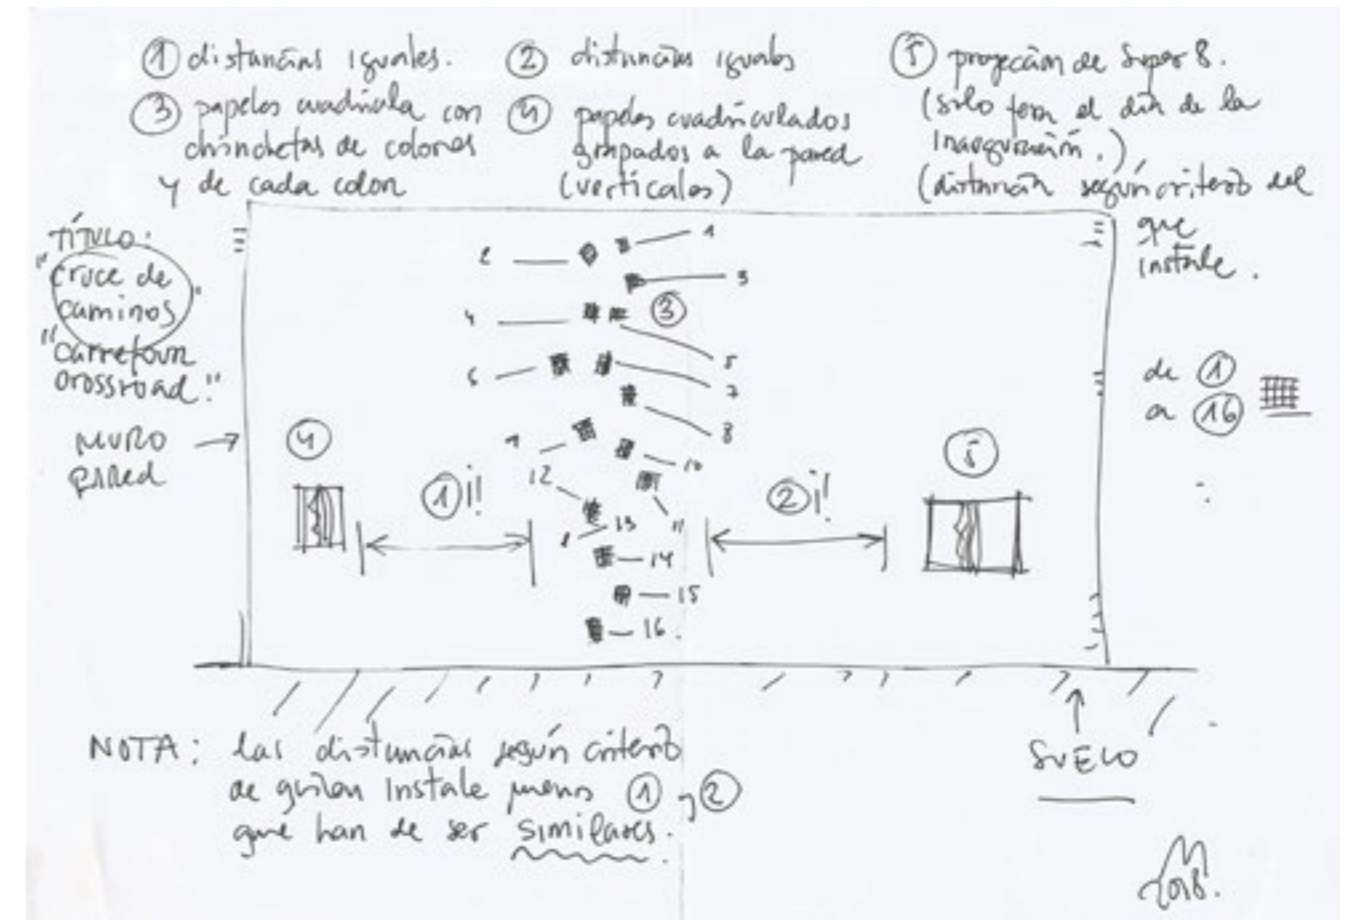 ① distancias iguales.
③ papeles cuadrícula con
chinchetas de colores
y de cada color
② distancias iguales
④ papeles cuadriculados
grapados a la pared
(verticales)
⑤ proyección de Super 8.
(sólo para el día de la
inauguración.)
(distancia según criterio del
que
instale.
TÍTULO:
"cruce de
caminos"
"carrefour
crossroad."
MURO
pared
1
2
3
4
③
5
6
7
8
④
⑤
10
12
①¡!
②¡!
13
11
14
15
16.
de ①
a ⑯
SUELO
NOTA: las distancias según criterio
de quien instale menos ① y ②
que han de ser similares.
2018.